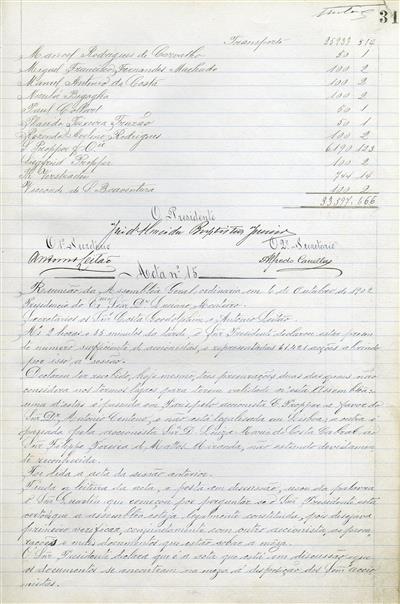 31
Transporte 25933 514
Manoel Rodrigues de Carvalho 50 1
Miguel Francisco Fernandes Machado 100 2
Manoel Antonio da Costa 100 2
Nicola Bigaglia 100 2
Paul 50 1
Placido Teixeira 50 1
Rodrigues 100 2
S. Propper & Cie 6190 123
Siegfried Propper 100 2
M. 744 14
Visconde de S. Boaventura 100 2
33397 666
O Presidente
José d'Almeida Baptista Junior
O 1º Secretario O 2º Secretario
Antonio Leitão Alfredo
Acta nº 15
Reunião da Assembléa Geral ordinaria em 6 de Outubro de 1902
Presidencia do Exmo Snr. Dr. Luciano Monteiro.
Secretarios os Snrs. Costa e Antonio Leitão
Ás 2 horas e 45 minutos da tarde, o Snr. Presidente declara estar presente
o numero sufficiente de accionistas, e representadas acções abrindo
por isso a sessão.
Declara ter recebido, hoje mesmo, tres procurações, duas das quaes não
considera nos termos legaes para terem validade n'esta Assembléa:
uma d'estas é passada em Paris pelo accionista E. Propper a favor do
Snr. Dr. Antonio Centeno, e não está legalisada em Lisboa, e outra é
passada pela accionista Snra. D. Luiza de Costa Cabral ao
Snr. Felippe Pereira de Mattos Miranda, não estando devidamente
reconhecida.
Foi lida a acta da sessão anterior.
Finda a leitura da acta, e posta em discussão, usou da palavra
o Snr. que começou por perguntar se o Snr. Presidente está
certo que a assembléa esteja legalmente constituida, pois desejava
primeiro verificar, conjunctamente com outro accionista, as procu-
rações e mais documentos que estão sobre a mêza.
O Snr. Presidente declara que é a acta que está em discussão e que
os documentos se encontram na mêza á disposição dos Snrs. accio-
nistas.